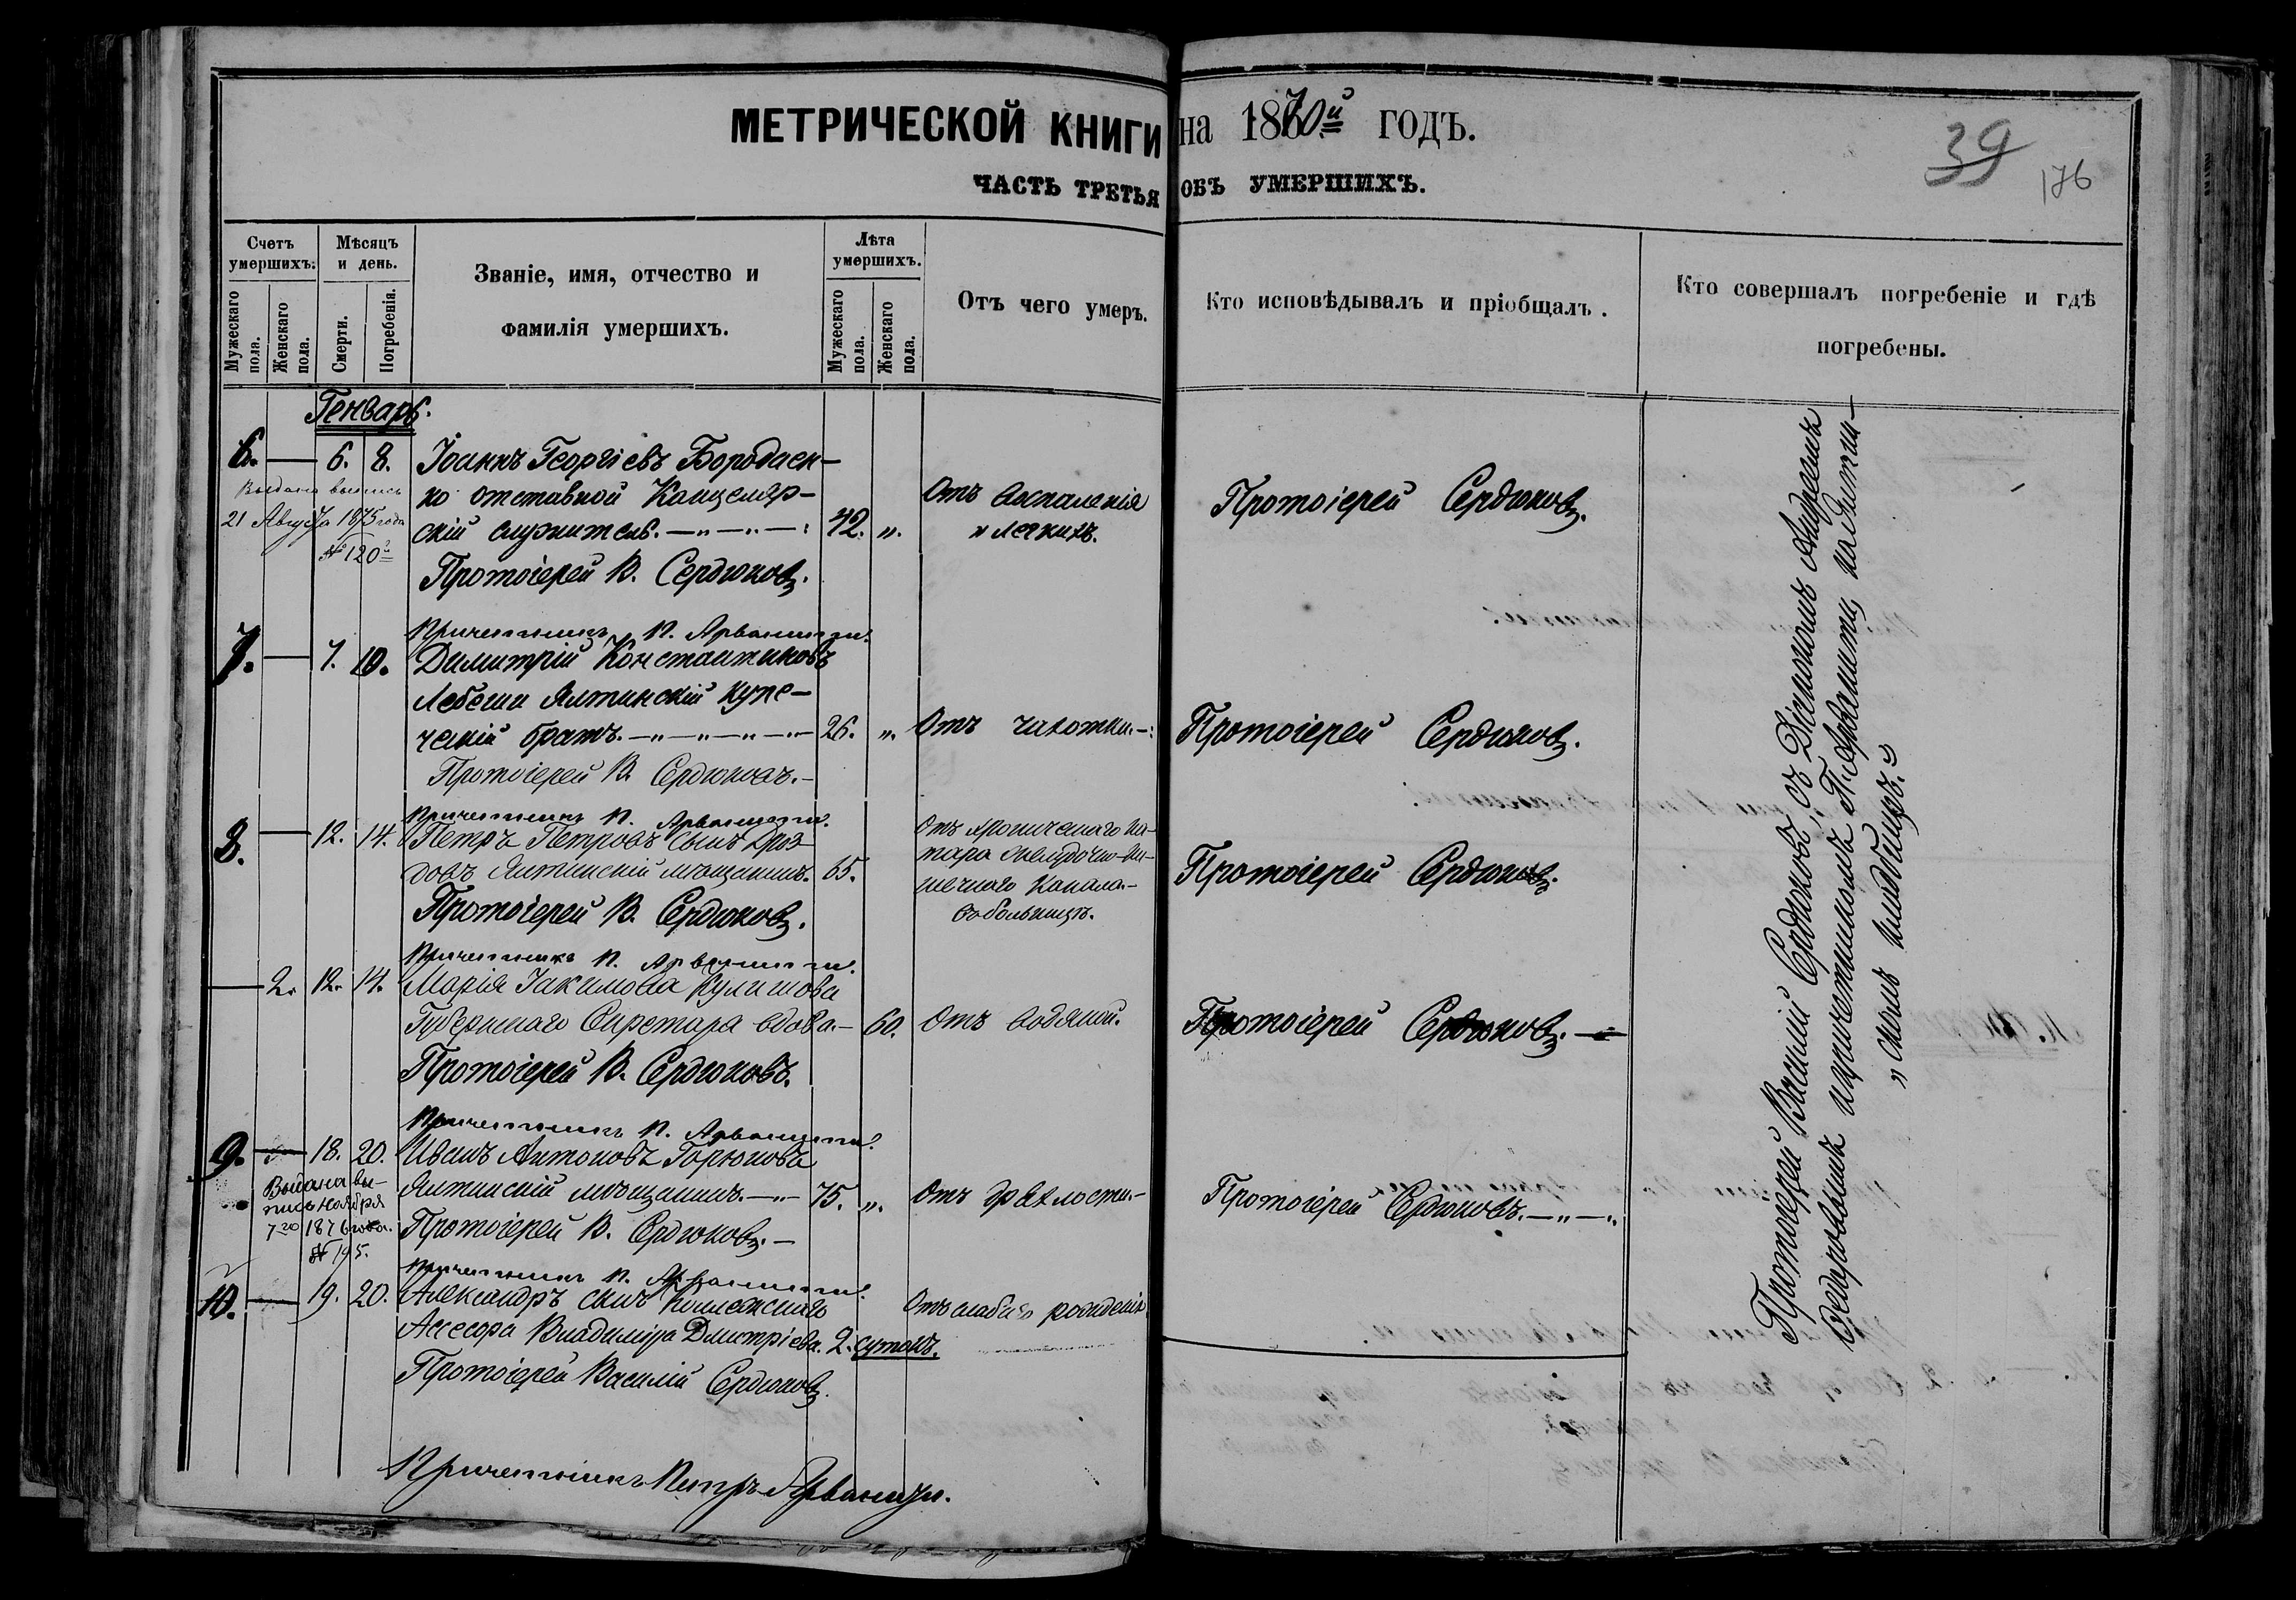 МЕТРИЧЕСКОЙ КНИГИ на 1870й годъ.
39
176
ЧАСТЬ ТРЕТЬЯ ОБЪ УМЕРШИХЪ.
Счетъ умершихъ.
Мужескаго пола.
Женскаго пола.
Мѣсяцъ и день.
Смерти.
Погребенія.
Званіе, имя, отчество и
фамилія умершихъ.
Лѣта умершихъ.
Мужескаго пола.
Женскаго пола.
Отъ чего умеръ.
Кто исповѣдывалъ и пріобщалъ.
Кто совершалъ погребеніе и гдѣ
погребены.
Генварь.
6. — 6. 8. Іоаннъ Георгіевъ Бородаен-
ко отставной Канцеляр-
скій служитель. — „ — „ — : 42. „.
Отъ воспаленія
„ легкихъ.
Протоіерей Сердюковъ.
Выдана выпись
21 Августа 1875 года
№ 120й
Протоіерей В. Сердюковъ.
Причетникъ П. Арванити.
7. — 7. 10. Димитрій Константиновъ
Ялтинскій купе-
ческій братъ. — „ — „ — „ — „ — 26. „. Отъ чахотки. —: Протоіерей Сердюковъ.
Протоіерей В. Сердюковъ. —
Причетникъ П. Арванити.
8. — 12. 14. Петръ Петровъ сынъ Дроз-
довъ Ялтинскій мѣщанинъ. 65.
Отъ хроническаго ка-
тара желудочно-ки-
шечнаго канала —
въ больницѣ.
Протоіерей Сердюковъ.
Протоіерей В. Сердюковъ.
Причетникъ П. Арванити.
— 2. 12. 14. Марія Іакимова Кулишова
Губернскаго Секретаря вдова. — 60. Отъ водяной. Протоіерей Сердюковъ. —
Протоіерей В. Сердюковъ.
Причетникъ П. Арванити.
9. — 18. 20. Иванъ Антоновъ Горюновъ
Ялтинскій мѣщанинъ. — „ — 75. „. Отъ дряхлости. — Протоіерей Сердюковъ. — „ — „
Выдана вы-
пись Ноября
7го 1876 года.
№ 195.
Протоіерей В. Сердюковъ. —
Причетникъ П. Арванити.
10. — 19. 20. Александръ сынъ Коллежскаго
Ассесора Владиміра Дмитріева. 2. сутокъ.
Отъ слабаго рожденія
Протоіерей Василій Сердюковъ.
Причетникъ Петръ Арванити.
Протоіерей Василій Сердюковъ, съ Діакономъ Андреемъ
и причетникомъ П. Арванити, на Ялтин-
„ скомъ кладбищѣ. „